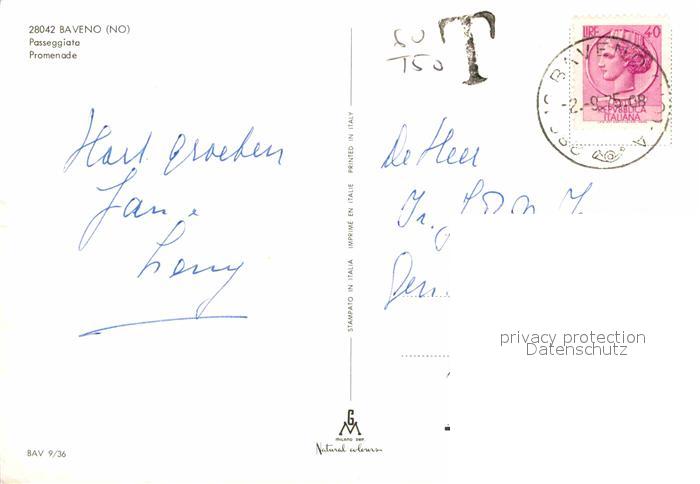 28042 BAVENO (NO)
Passeggiata
Promenade
Hart. groeten
Jan.
BAV 9/36
STAMPATO IN ITALIA IMPRIMÉ EN ITALIE PRINTED IN ITALY
GM
MILANO DEP.
Natural colours
50
T50
T
LIRE 40
REPVBBLICA
ITALIANA
BAVENO
-2.-9.75.08
De Heer
Ir.
privacy protection
Datenschutz